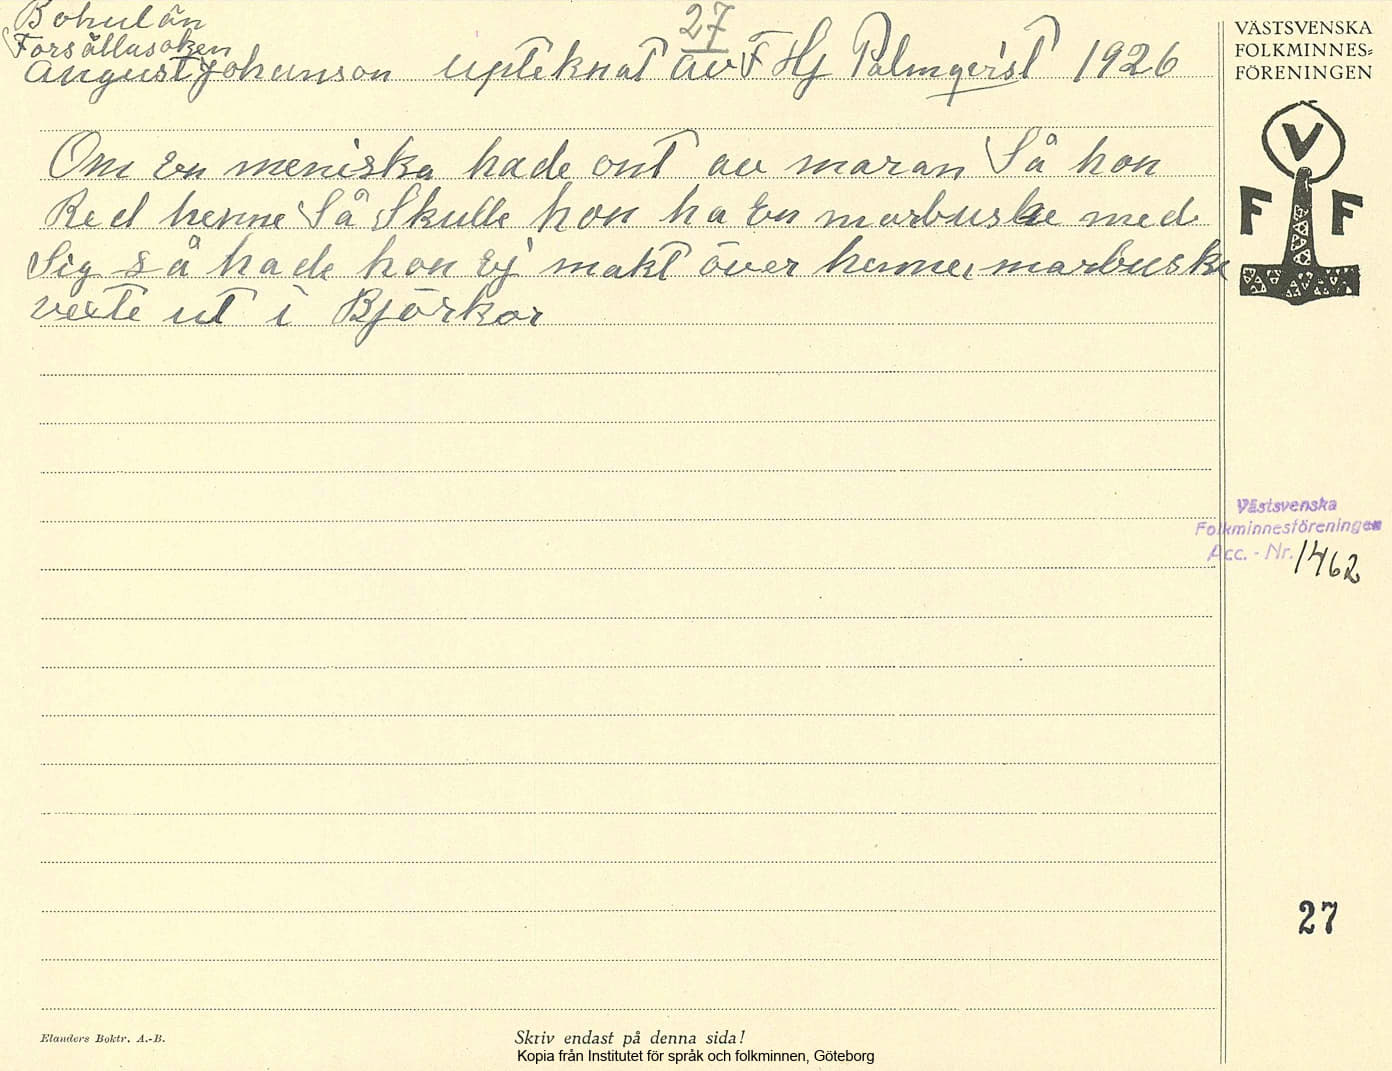 Bohulän
Forsällasoken
27
August Johanson upteknat av F Hj Palmqvist 1926
Om En meniska hade ont av maran Så hon
Red henne Så Skulle hon ha En marbuske med
Sig så hade hon Ej makt över henne, marbuske
vexte ut i Björkar
VÄSTSVENSKA
FOLKMINNES=
FÖRENINGEN
V
F F
Västsvenska
Folkminnesföreningen
Acc. - Nr. 1462
27
Elanders Boktr. A.-B.
Skriv endast på denna sida!
Kopia från Institutet för språk och folkminnen, Göteborg